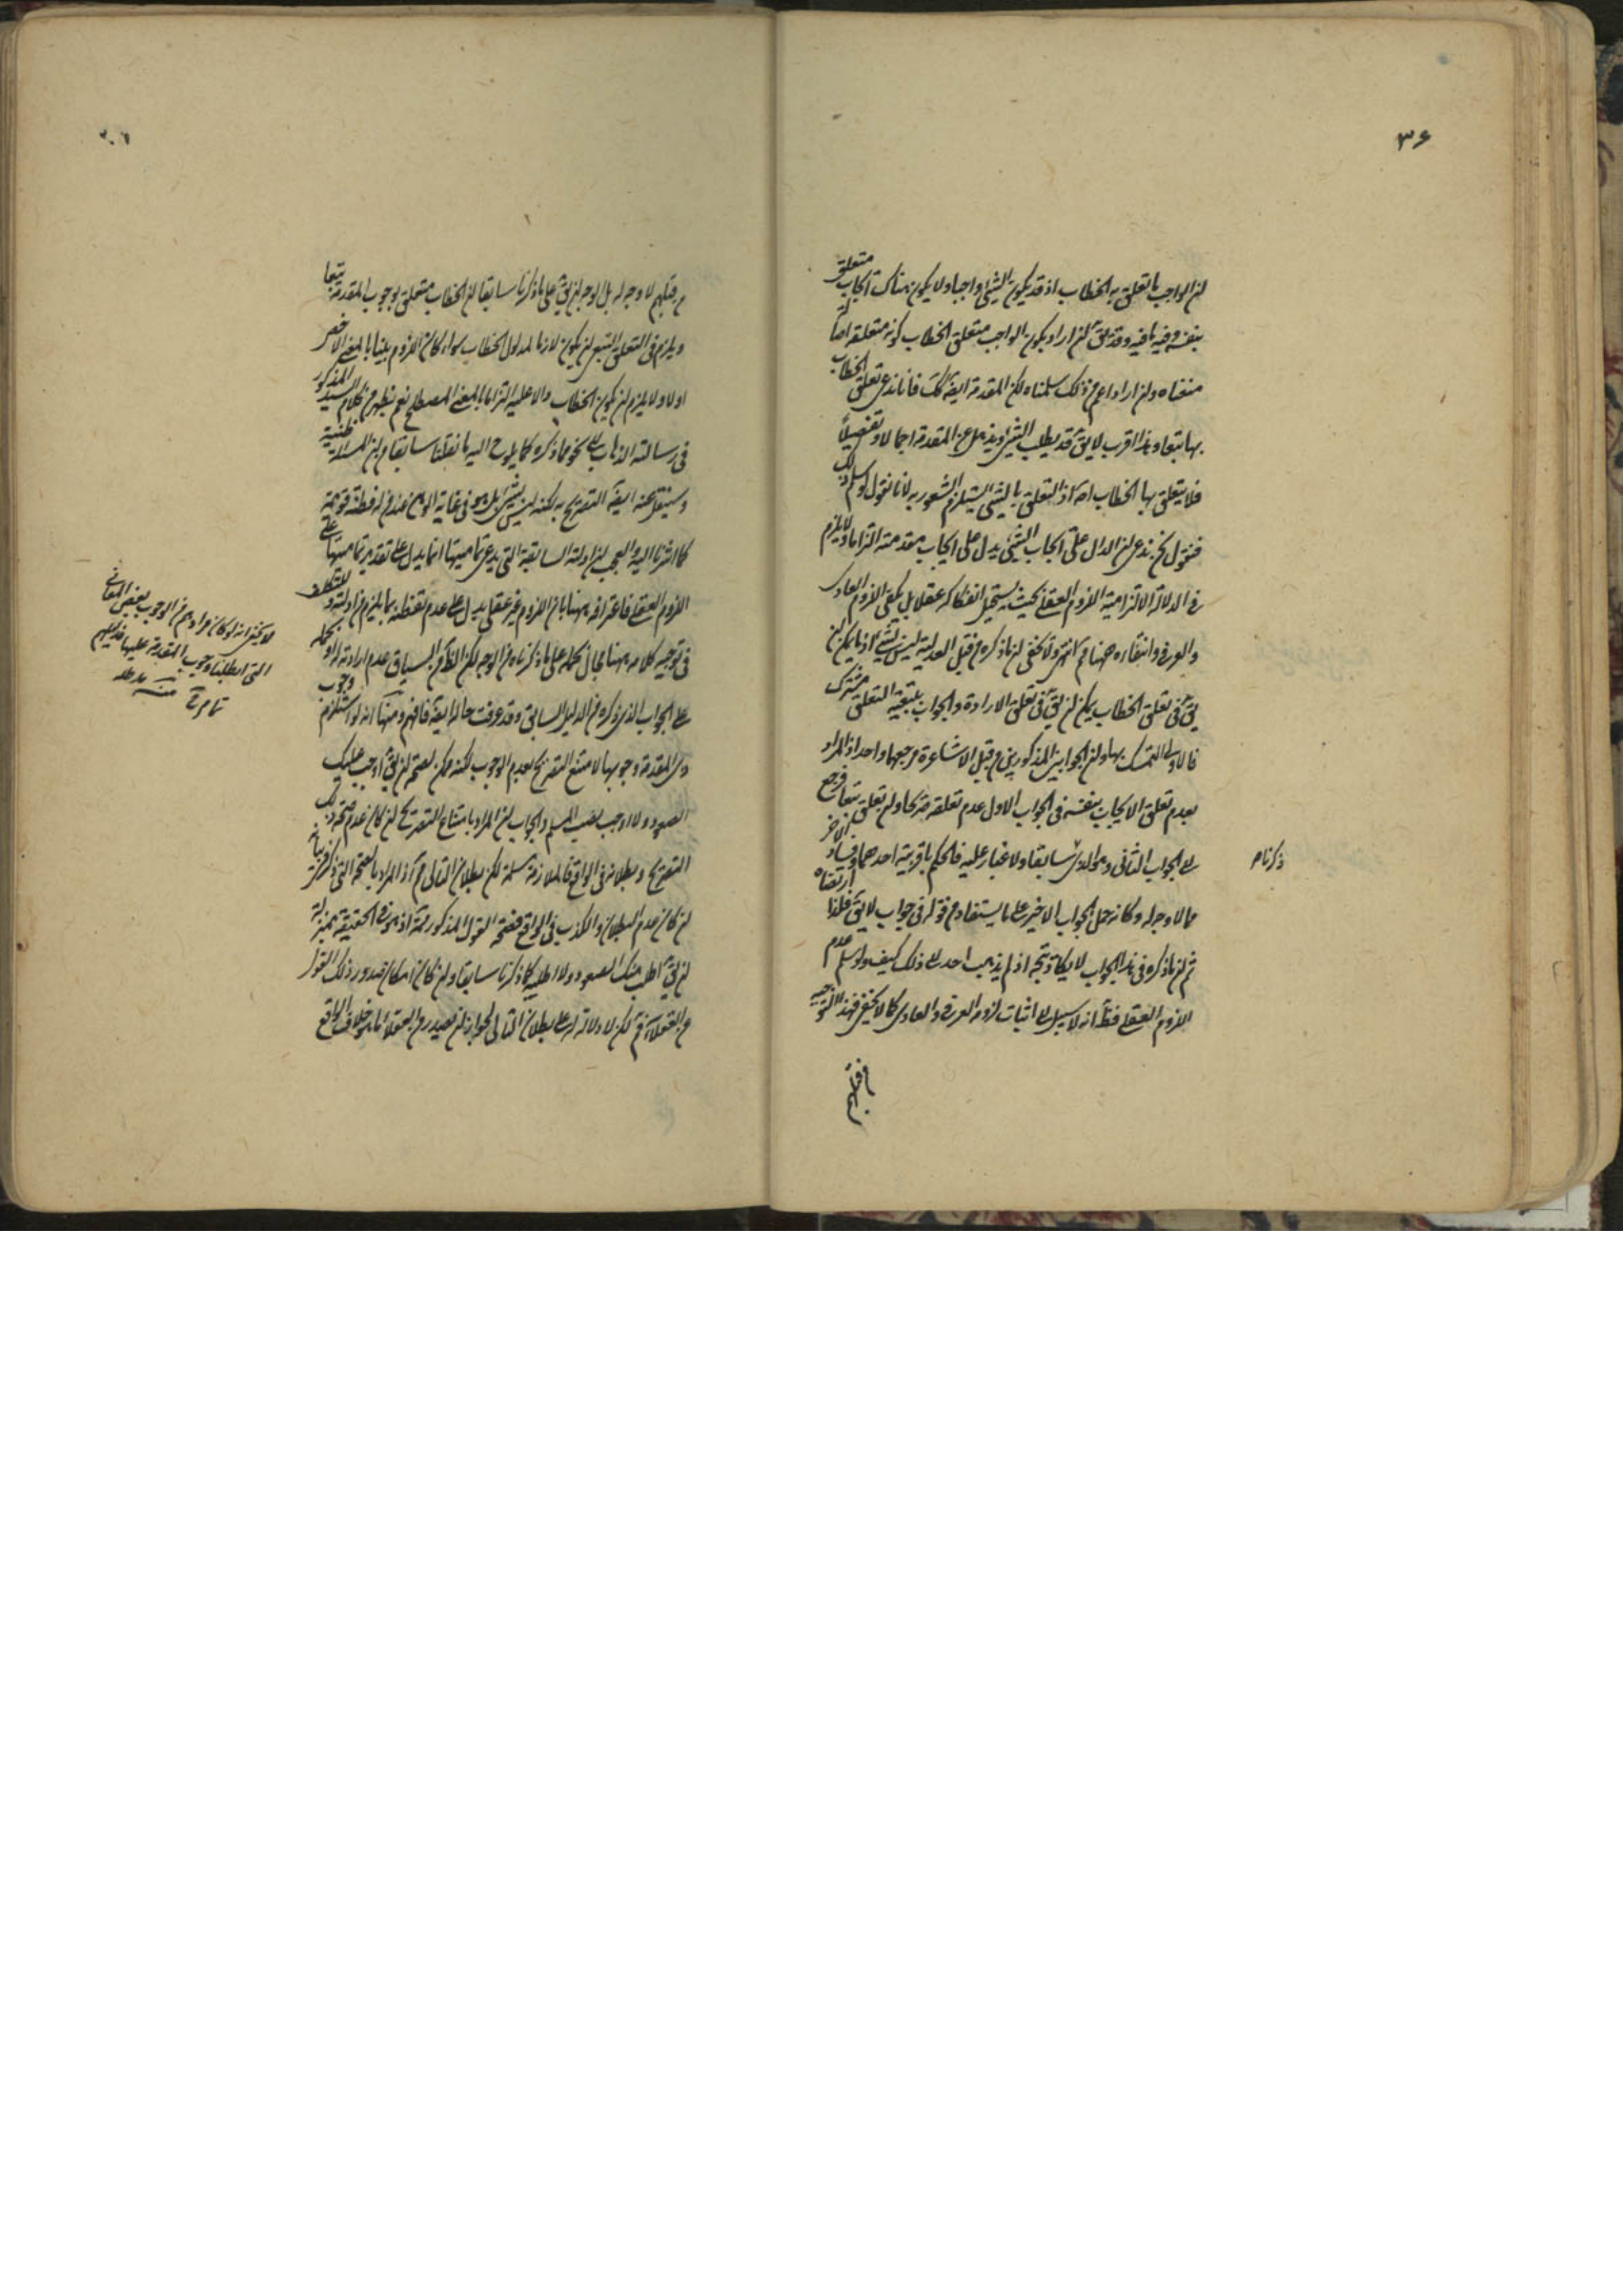 ۳۶
ان الواجب ما تعلق به الخطاب اذ قد يكون الشئ واجبا ولا يكون هناك ايجاب متعلق
بنفسه وفيه ما فيه وقد يق ان اراد بكون الواجب متعلق الخطاب كونه متعلقه اصالة
منعناه وان اراد اعم من ذلك سلمناه لكن المقدمة ايضا كك فانا ندعى تعلق الخطاب
بها تبعا وهذا اقرب لا يق قد يطلب الشئ ويذهل عن المقدمة اجمالا وتفصيلا
فلا يتعلق بها الخطاب اصلا اذ التعلق بالشئ يستلزم الشعور به لانا نقول لو سلم ذلك
فنقول نحن ندعى ان الدال على ايجاب الشئ يدل على ايجاب مقدمته التزاما ولا يلزم
فى الدلالة الالتزامية اللزوم العقلى بحيث يستحيل انفكاكه عقلا بل يكفى اللزوم العادى
والعرفى وانتفاءه ههنا مم انتهى ولا يخفى ان ما ذكره من قبل العدلية ليس بشئ اذ ما يمكن ان
يق فى تعلق الخطاب يمكن ان يق فى تعلق الارادة والجواب بتبعية التعلق مشترك
فالاولى التمسك بها وان الجوابين المذكورين من قبل الاشاعرة مرجعهما واحد اذ المراد
بعدم تعلق الايجاب بنفسه فى الجواب الاول عدم تعلقه صريحا وان تعلق تبعا فرجع
الى الجواب الثانى وهو الذى سابقا ولا غبار عليه فالحكم باقربية احدهما وفساد الاخر
ذكرناه
مما لا وجه له وكانه حمل الجواب الاخير على ما يستفاد من قوله فى جواب لا يق فلذا ارتضاه
ثم ان ما ذكره فى هذا الجواب لا يكاد يتجه اذ لم يذهب احد الى ذلك كيف ولو سلم عدم
اللزوم العقلى فظ انه لا سبيل الى اثبات لزوم العرفى والعادى كما لا يخفى فهذا التوجيه
من قبلهم
من قبلهم لا وجه له بل الوجه ان يق على ما ذكرنا سابقا ان الخطاب متعلق بوجوب المقدمة تبعا
ويلزم فى التعلق التبعى ان يكون لازما لمدلول الخطاب سواء كان اللزوم بينا بالمعنى الاخص
او لا ولا يلزم ان يكون الخطاب دالا عليه التزاما بالمعنى المصطلح نعم يظهر من كلام السيد المذكور
فى رسالته الذهاب الى نحو ما ذكره كما يلوح اليه ما نقلنا سابقا من ان المسئلة ظنية
وسينقل عنه ايضا التصريح به لكنه ليس بشئ بل هو فى غاية الوهن عند من له فطنة قويمة
كما اشرنا اليه والعجب ان ادلته السابقة التى يدعى تماميتها انما يدل على تقدير تماميتها على
اللزوم العقلى فاعترافه ههنا بان اللزوم غير عقلى يدل على عدم تفطنه بما يلزم من ادلته وللتكلف
فى توجيه كلامه ههنا مجال بحمله على ما ذكرناه من الوجه لكن الظ من السياق عدم ارادته او بحمله
على الجواب الذى ذكره فى الدليل السابق وقد عرفت حاله ايضا فافهم ومنها انه لو استلزم وجوب
ذى المقدمة وجوبها لامتنع التصريح بعدم الوجوب لكنه ممكن لصحة ان يق اوجب عليك
الصعود ولا اوجب نصب السلم والجواب ان المراد بامتناع التصريح ان كان عدم صحة ذلك
التصريح وبطلانه فى الواقع فالملازمة مسلمة لكن بطلان التالى مم اذ المراد بالصحة التى ذكر فى بيانه
ان كان عدم البطلان والكذب فى الواقع فصحة القول المذكور مم اذ هو فى الحقيقة بمنزلة
ان يق اطلب منك الصعود ولا اطلبه كما ذكرنا سابقا وان كان امكان صدور ذلك القول
من العقلاء فمسلم لكن لا دلالة له على بطلان التالى لجواز ان يصدر من العقلاء ما هو خلاف الواقع
لا يخفى انه لو كان مرادهم من الوجوب بعض المعانى
التى ابطلنا وجوب المقدمة عليها فدليلهم
تام مم منه مد ظله